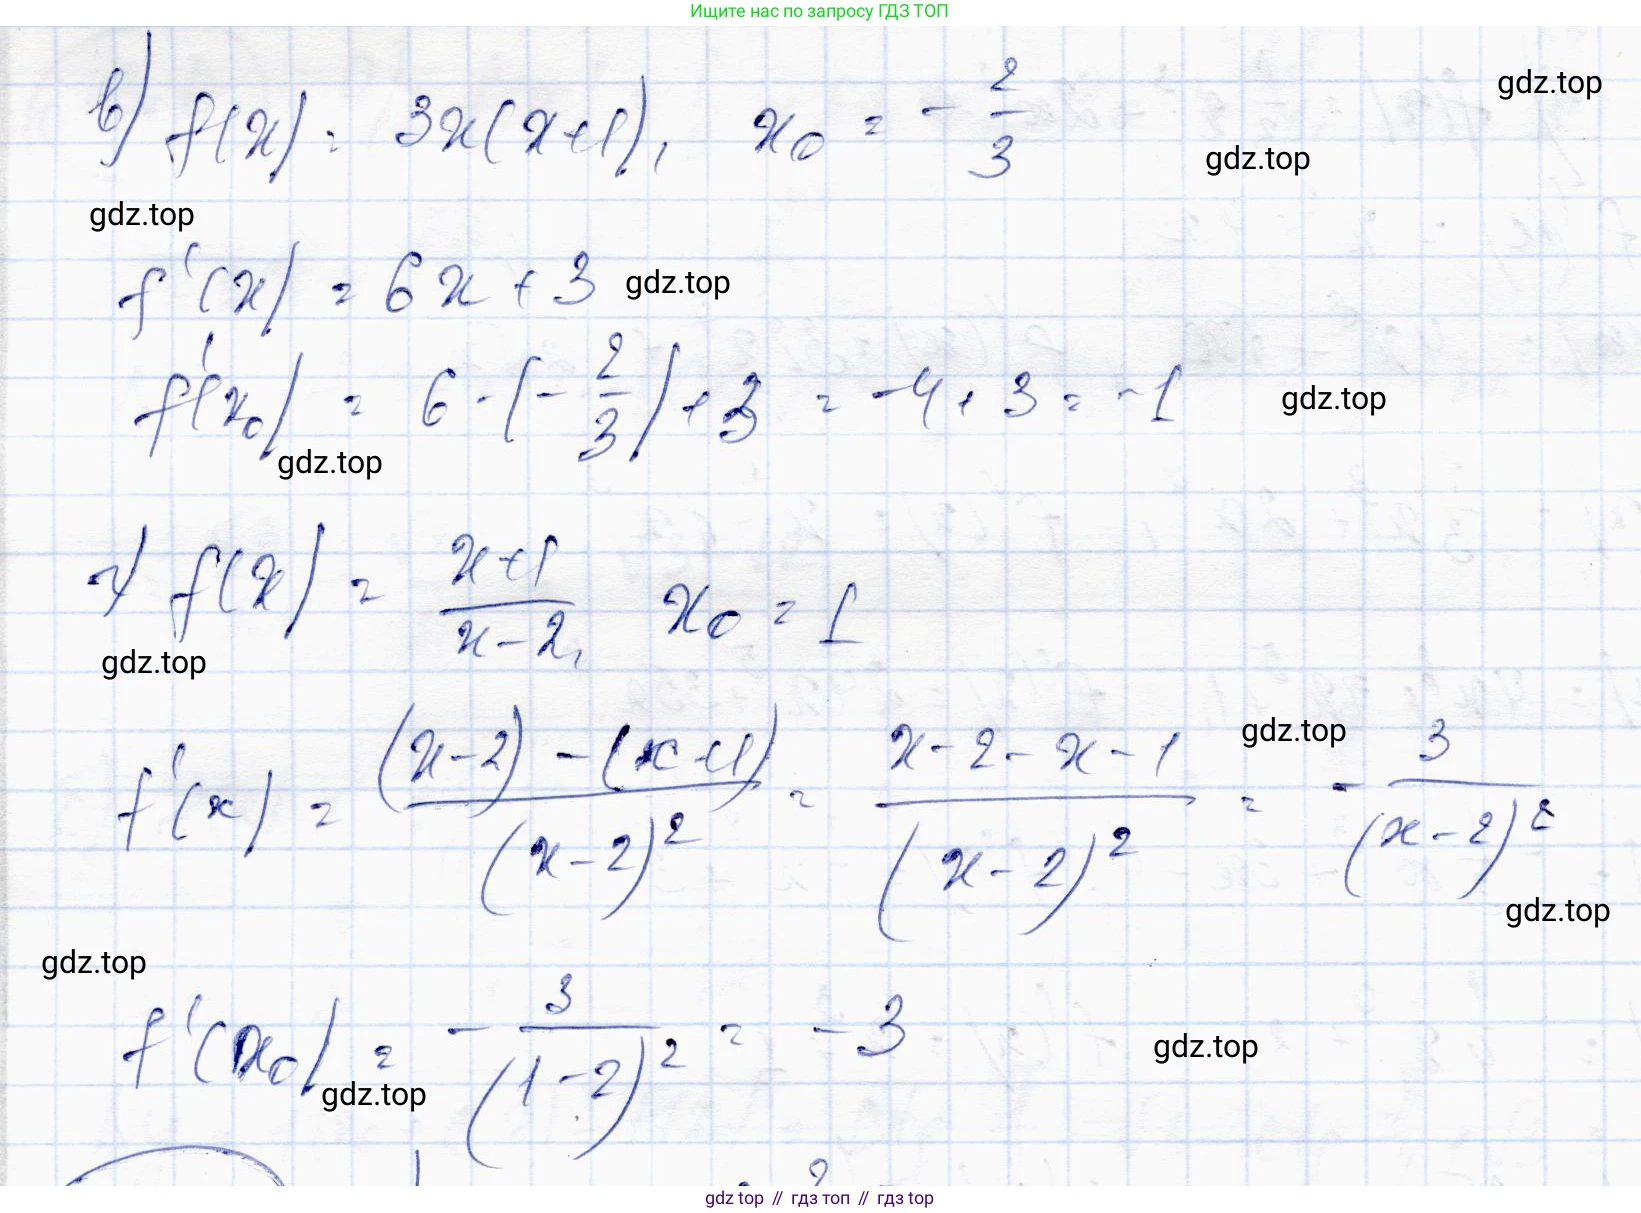 Ищите нас по запросу ГДЗ ТОП
gdz.top
в) f(x) = 3x(x+1), x₀ = -2/3
gdz.top
gdz.top
f'(x) = 6x + 3
gdz.top
f'(x₀) = 6·(-2/3) + 3 = -4 + 3 = -1
gdz.top
gdz.top
г) f(x) = (x+1)/(x-2), x₀ = 1
gdz.top
gdz.top
f'(x) = ((x-2) - (x+1))/(x-2)² = (x-2-x-1)/(x-2)² = -3/(x-2)²
gdz.top
gdz.top
f'(x₀) = -3/(1-2)² = -3
gdz.top
gdz.top
gdz top // гдз топ // гдз top